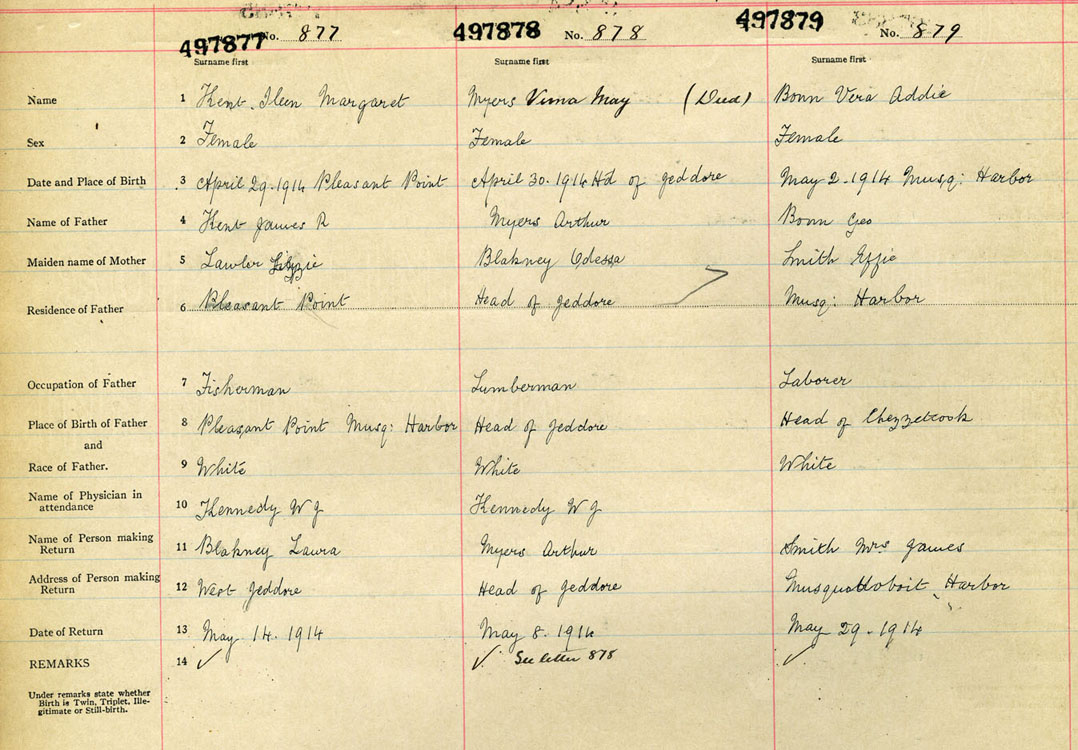 497877 No. 877 497878 No. 878 497879 No. 879
Surname first Surname first Surname first
Name 1 Kent. Ileen Margaret Myers Verna May (Dead) Bonn Vera Addie
Sex 2 Female Female Female
Date and Place of Birth 3 April 29. 1914 Pleasant Point April 30. 1914 Hd of Jeddore May 2. 1914 Musq: Harbor
Name of Father 4 Kent James R Myers Arthur Bonn Geo
Maiden name of Mother 5 Lawlor Lizzie Blakney Odessa Smith Effie
Residence of Father 6 Pleasant Point Head of Jeddore Musq: Harbor
Occupation of Father 7 Fisherman Lumberman Laborer
Place of Birth of Father 8 Pleasant Point Musq: Harbor Head of Jeddore Head of Chezzetcook
and
Race of Father. 9 White White White
Name of Physician in
attendance 10 Kennedy W J Kennedy W J
Name of Person making
Return 11 Blakney Laura Myers Arthur Smith Mrs James
Address of Person making
Return 12 West Jeddore Head of Jeddore Musquodoboit Harbor
Date of Return 13 May 14. 1914 May 8. 1914 May 29. 1914
REMARKS 14 ✓ ✓ See letter 878 ✓
Under remarks state whether
Birth is Twin, Triplet, Ille-
gitimate or Still-birth.